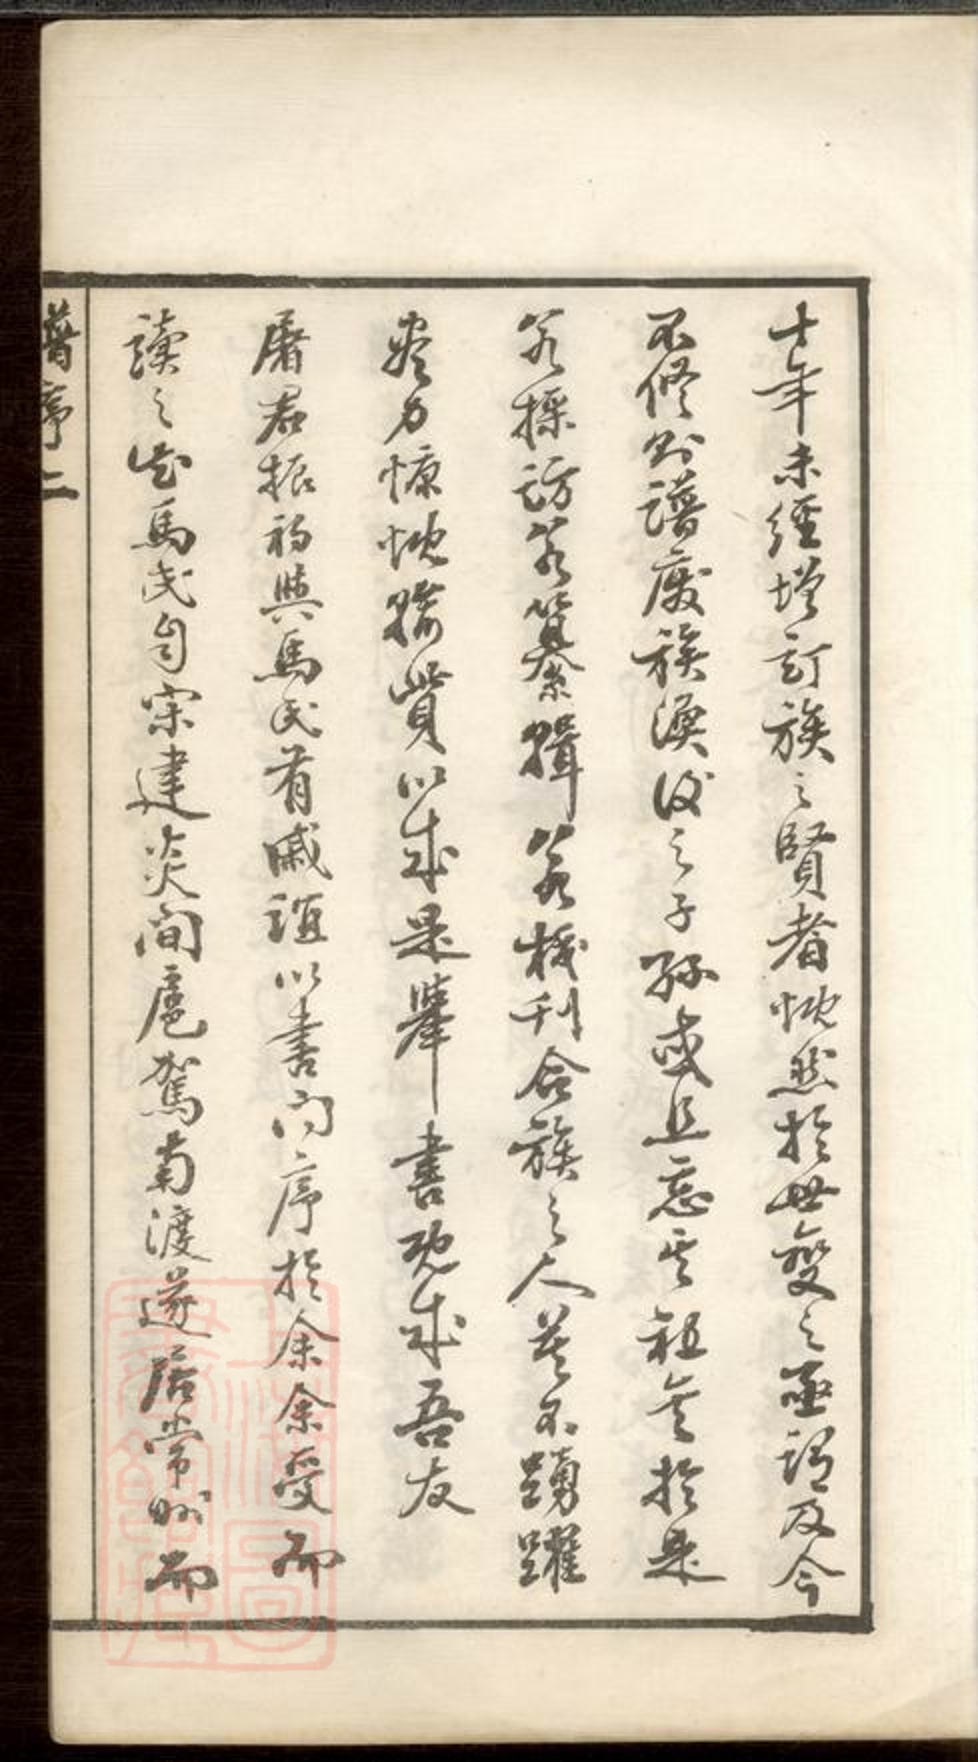 十年未經增訂族之賢者慨然於世變之亟謂及今
不修則譜廢族渙後之子孫或且忘其祖矣於是
若採訪若纂輯若校刊合族之人莫不踴躍
盡力慷慨輸貲以成是舉書既成吾友
屠君振初與馬氏有戚誼以書問序於余余受而
讀之知馬氏自宋建炎間扈駕南渡遂居常州而
譜序二
上海圖書館藏